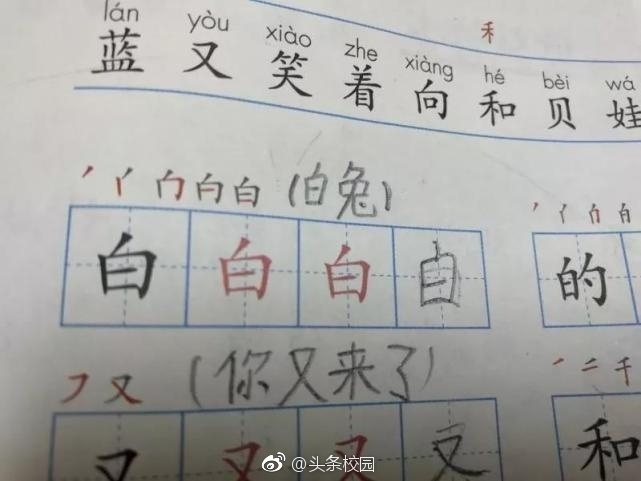 lán yòu xiào zhe xiàng hé bèi wá
蓝 又 笑 着 向 和 贝 娃
禾
白 (白兔)
白 白 白 自 的
又 (你又来了)
又 又 又 又 和
@头条校园